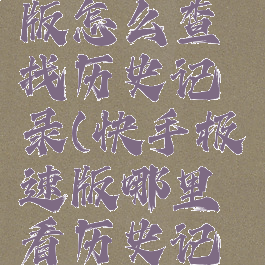 版怎么查
找历史记
录(快手极
速版哪里
看历史记